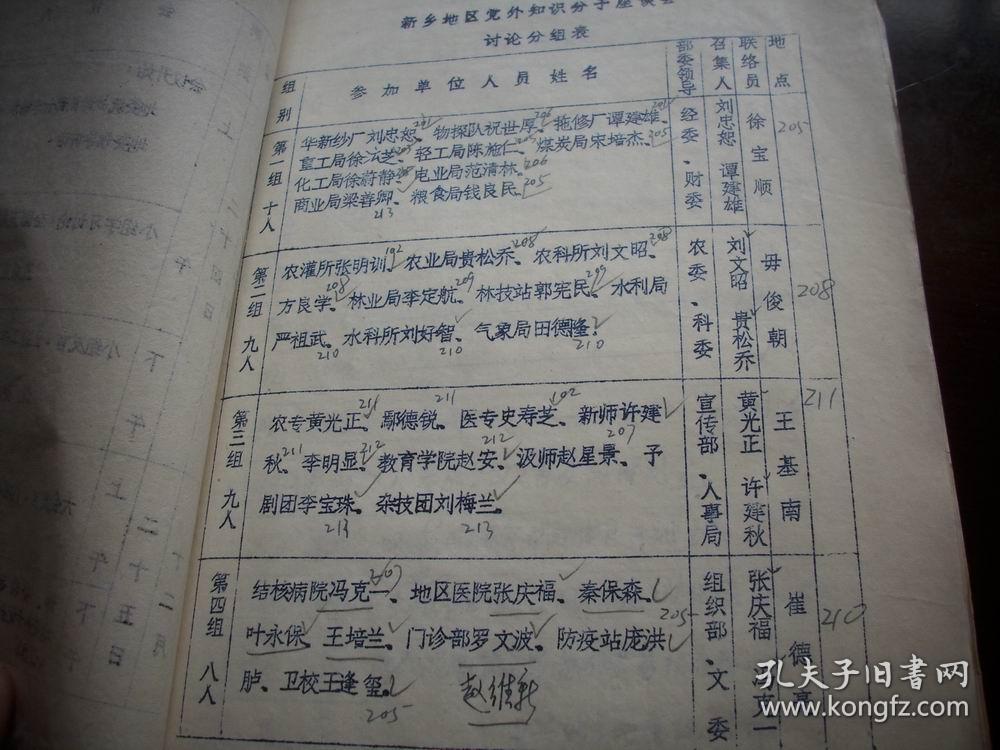 新乡地区党外知识分子座谈会
讨论分组表
组别
参加单位人员姓名
部委领导
召集人
联络员
地点
第一组 十人
华新纱厂刘忠恕、物探队祝世厚、拖修厂谭建雄、
皇工局徐沄芝、轻工局陈施仁、煤炭局宋培杰、
化工局徐蔚静、电业局范清林、
商业局梁善卿、粮食局钱良民、
201 206 201
205 205 205
206
213 205
经委、财委
刘忠恕 谭建雄
徐宝顺
205
第二组 九人
农灌所张明训、农业局贵松乔、农科所刘文昭、
方良学、林业局李定航、林技站郭宪民、水利局
严祖武、水科所刘好智、气象局田德逢、
102 208 208
208 209 209
210 210 210
农委、科委
刘文昭 贵松乔
毋俊朝
208
第三组 九人
农专黄光正、鄢德锐、医专史寿芝、新师许建
秋、李明显、教育学院赵安、汲师赵星景、予
剧团李宝珠、杂技团刘梅兰、
211 211 102
211 212 212 207
213 213
宣传部、人事局
黄光正 许建秋
王基南
211
第四组 八人
结核病院冯克一、地区医院张庆福、秦保森、
叶永保、王培兰、门诊部罗文波、防疫站庞洪
胪、卫校王逢玺、
赵维新
207
205
205
组织部、文委
张庆福 冯克一
崔德亭
210
小组
下午
上午
二十五日
十二月
孔夫子旧书网
kongfz.com